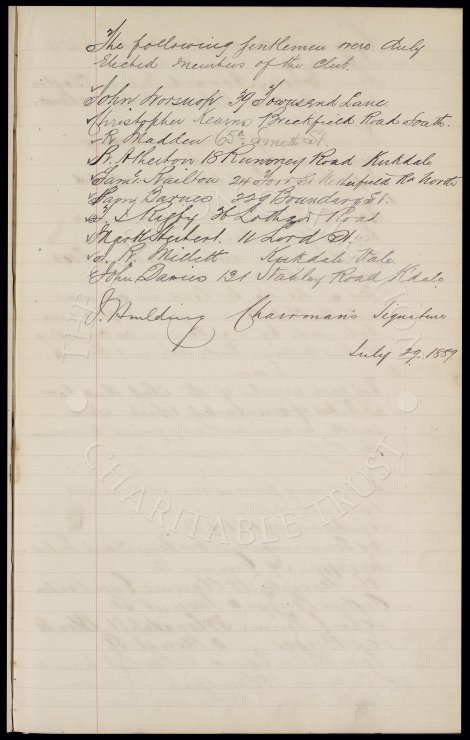 The following Gentlemen were duly
Elected Members of the Club.
John Worsnop 39 Townsend Lane.
Christopher Kearns Breckfield Road South.
R. Madden 65a Smith St
W. Atherton 18 Rumney Road Kirkdale
Saml. Railton 24 St Netherfield Rd North
Harry Barnes 229 Boundary St.
T S Rigby 36 Road
Herbert. 11 Lord St.
J. R. Millett Kirkdale Vale
John Davies 131 Road K'dale
J. Houlding Chairman's Signature
July 29. 1889
THE
CHARITABLE TRUST